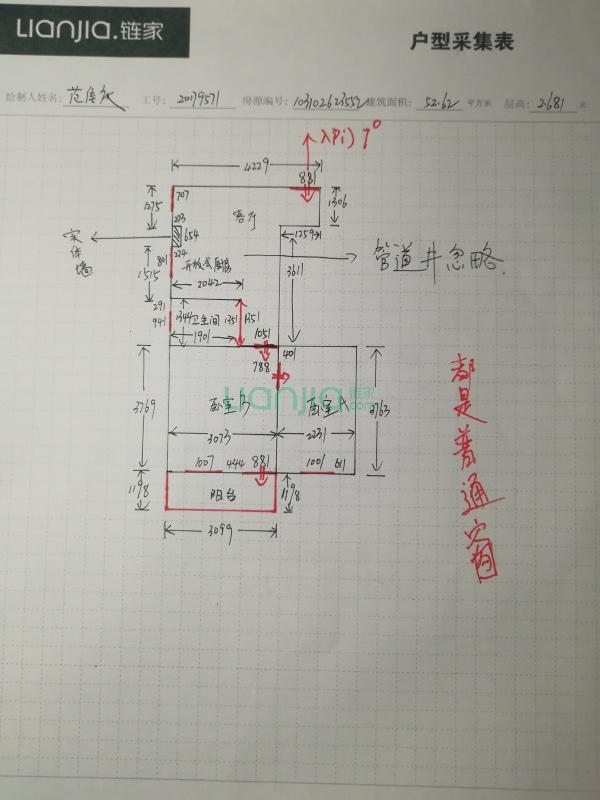 Lianjia.链家
户型采集表
绘制人姓名: 工号: 20179571 房源编号: 103102623552 建筑面积: 52.62 平方米 层高: 2.681 米
7°
4229
881
707
1275
客厅
1306
273
654
1259
实体墙
274
801
开放式厨房
管道井忽略.
3611
1515
2042
291
941
1344
卫生间
1351
1351
1901
1051
788
401
都是普通窗
3769
卧室B
卧室A
3763
Lianjia.链家
3073
2231
1007
444
881
1001
611
1198
阳台
1198
3099